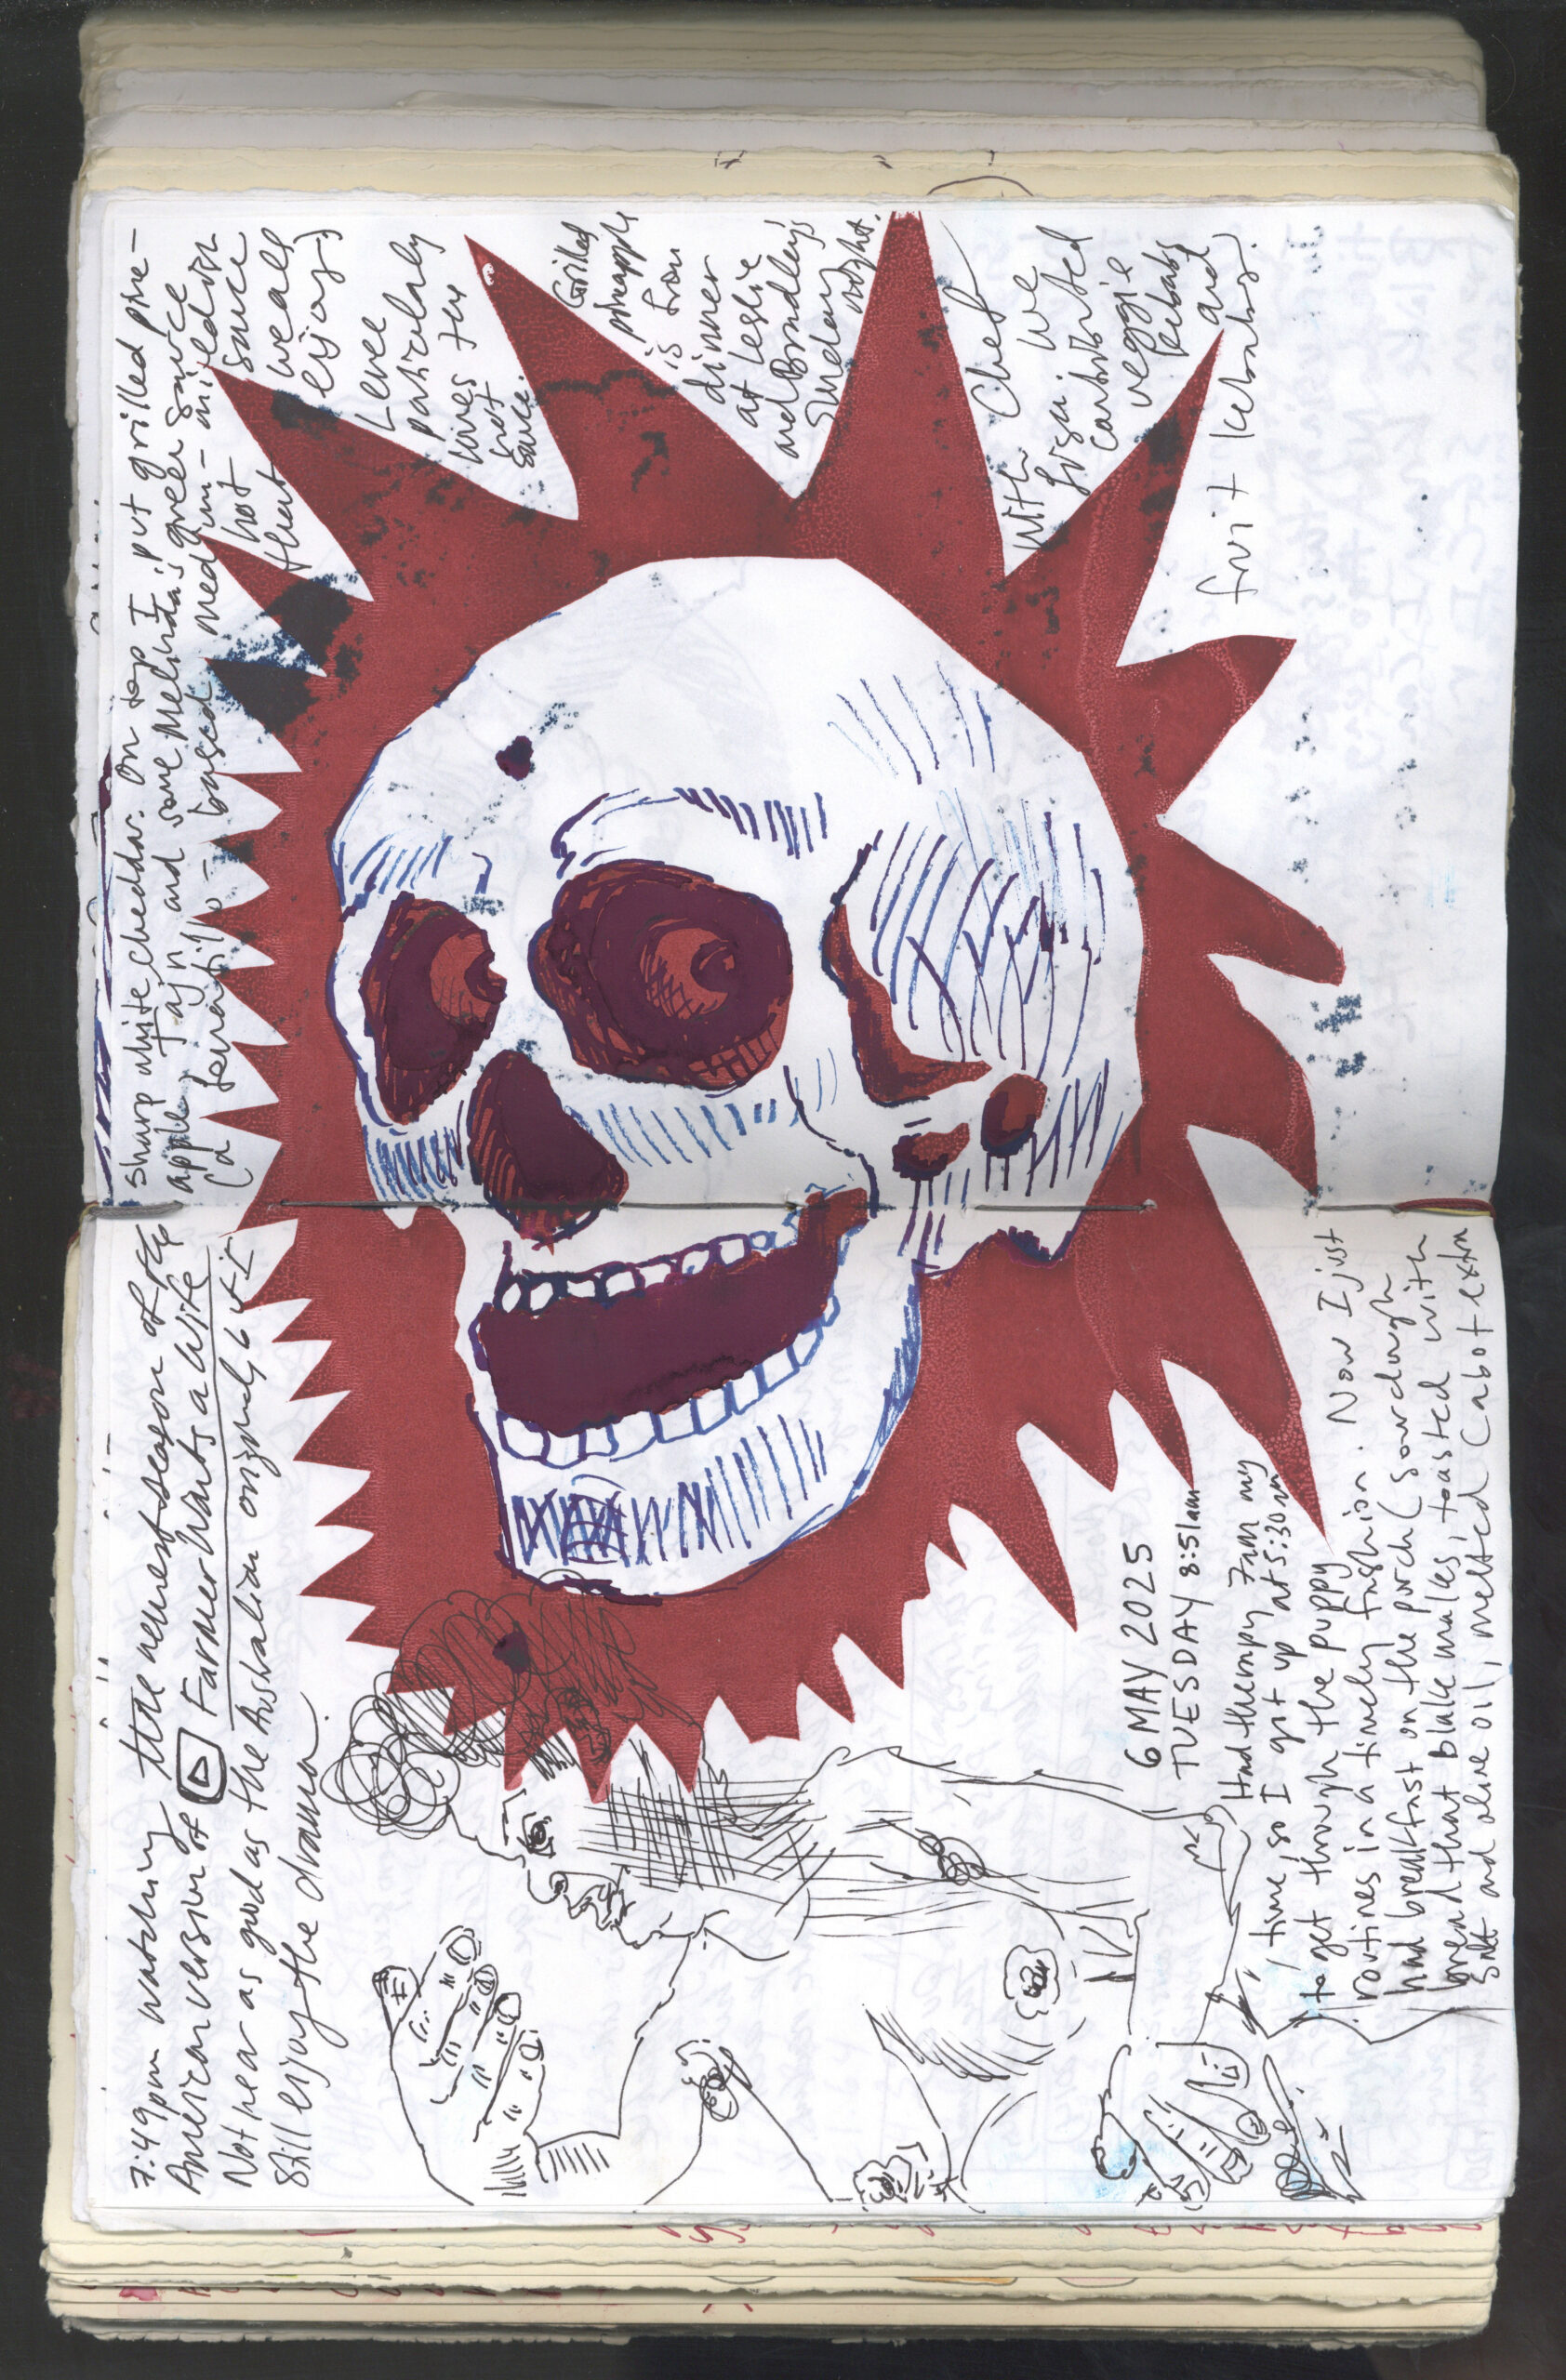 7:49pm watching the newest season of the
American version of Farmer Wants a Wife
Not near as good as the Australian original, but I
still enjoy the drama.
6 MAY 2025
TUESDAY 8:51am
Had therapy 7am my
time, so I got up at 5:30am
to get through the puppy
routines in a timely fashion. Now I just
had breakfast on the porch (sourdough
bread that Blake makes, toasted with
salt and olive oil, melted Cabot extra
sharp white cheddar. On top I put grilled pine-
apple, and some Melinda's green sauce
(a tomatillo-based medium-mildish
hot sauce
that we all
enjoy)
particularly
loves the
hot
sauce.
Grilled
pineapple
is from
dinner
at Leslie
and Brindley's
Sunday night.
With Chef
we
contributed
veggie
kebabs
and
fruit kebabs.